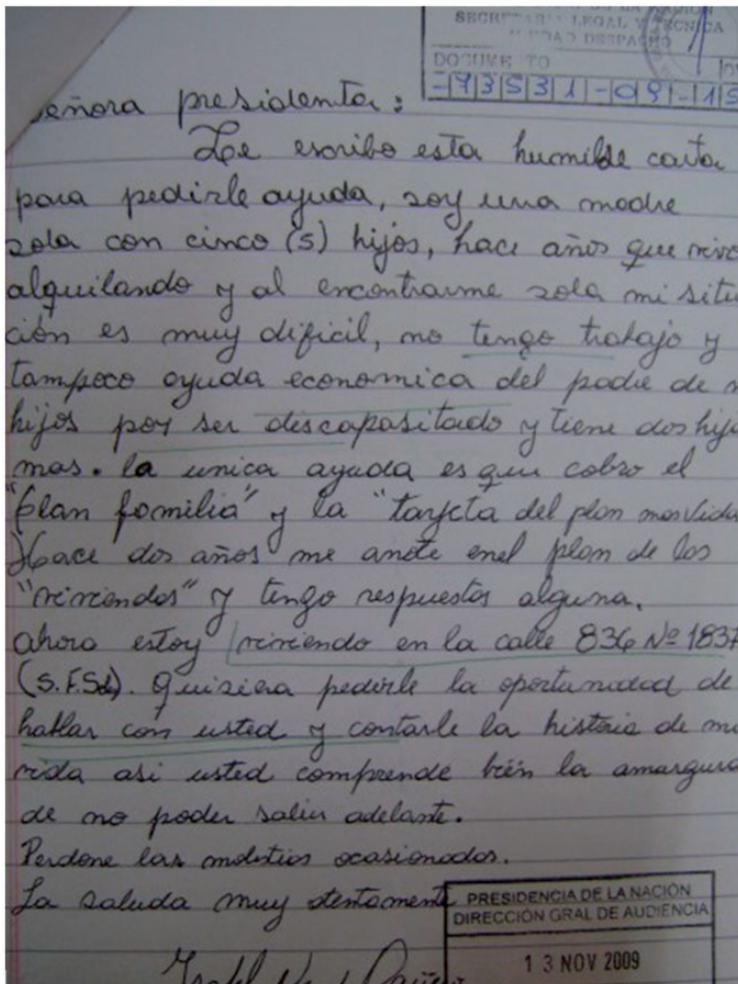 DE LA NACIÓN
SECRETARIA LEGAL Y TECNICA
DESPACHO
DOCUMENTO
-93531-09-1-5
eñora presidenta:
Le escribo esta humilde carta
para pedirle ayuda, soy una madre
sola con cinco (5) hijos, hace años que vivo
alquilando y al encontrarme sola mi situ
ción es muy dificil, no tengo trabajo y
tampoco ayuda economica del padre de m
hijos por ser discapasitado y tiene dos hijo
mas. la unica ayuda es que cobro el
"plan familia" y la "tarjeta del plan mas Vida
Hace dos años me anote enel plan de las
"viviendas" y tengo respuestas alguna.
ahora estoy viviendo en la calle 836 Nº 1837
(S.F.Sol). Quisiera pedirle la oportunidad de
hablar con usted y contarle la historia de mi
vida asi usted comprende bién la amargura
de no poder salir adelante.
Perdone las molestias ocasionadas.
La saluda muy atentamente
PRESIDENCIA DE LA NACIÓN
DIRECCIÓN GRAL DE AUDIENCIA
13 NOV 2009
Isabel